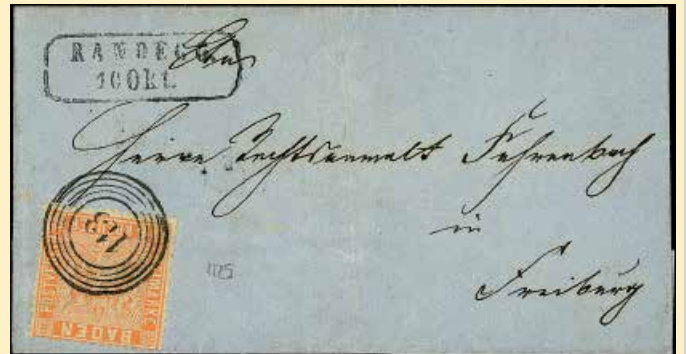 RANDEGG
10 Okt.
Herrn Rechtsanwalt Fehrenbach
in
Freiburg
113
1125
BADEN